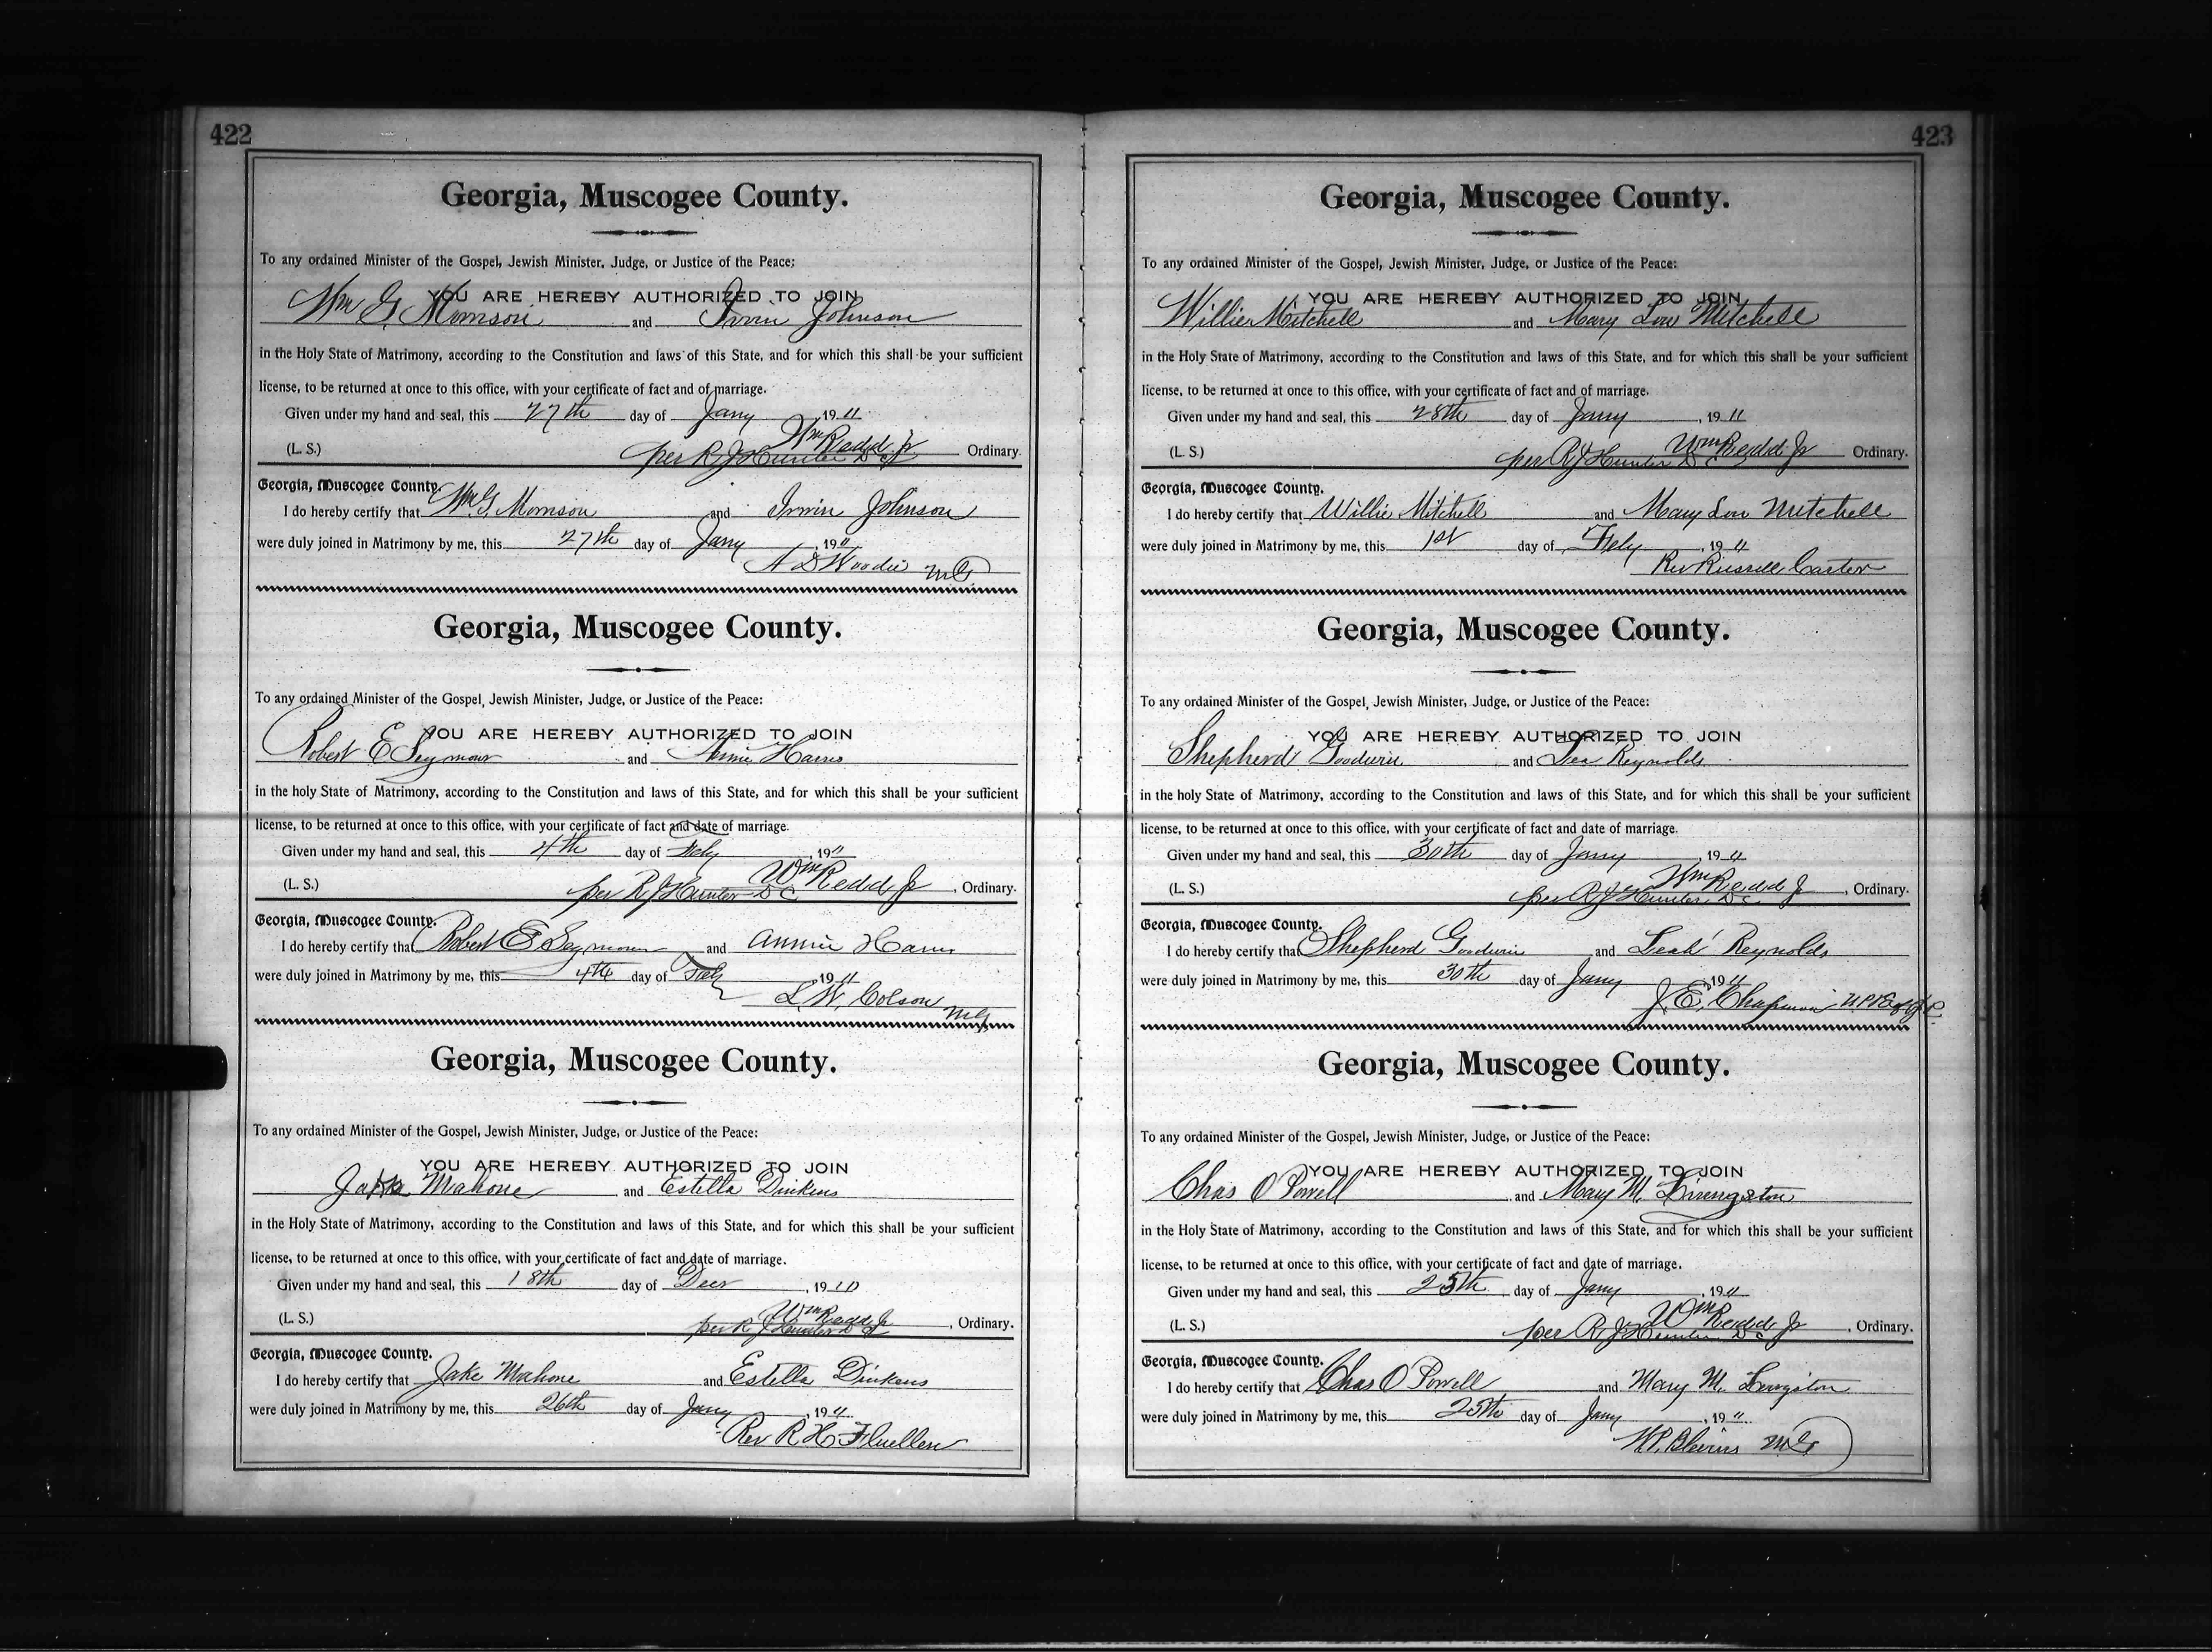 422
Georgia, Muscogee County.
To any ordained Minister of the Gospel, Jewish Minister, Judge, or Justice of the Peace;
YOU ARE HEREBY AUTHORIZED TO JOIN
Wm G. Morrison and Irwin Johnson
in the Holy State of Matrimony, according to the Constitution and laws of this State, and for which this shall be your sufficient
license, to be returned at once to this office, with your certificate of fact and of marriage.
Given under my hand and seal, this 27th day of Jany , 19 11
Wm Redd Jr
(L. S.) per R J Hunter D C Ordinary.
Georgia, Muscogee County.
I do hereby certify that Wm G. Morrison and Irwin Johnson
were duly joined in Matrimony by me, this 27th day of Jany , 19 11
A D Woodie M G
Georgia, Muscogee County.
To any ordained Minister of the Gospel, Jewish Minister, Judge, or Justice of the Peace:
YOU ARE HEREBY AUTHORIZED TO JOIN
Robert E Seymour and Annie Harris
in the holy State of Matrimony, according to the Constitution and laws of this State, and for which this shall be your sufficient
license, to be returned at once to this office, with your certificate of fact and date of marriage.
Given under my hand and seal, this 4th day of Feby , 19 11
Wm Redd Jr
(L. S.) per R J Hunter D C , Ordinary.
Georgia, Muscogee County.
I do hereby certify that Robert E Seymour and Annie Harris
were duly joined in Matrimony by me, this 4th day of Feby , 19 11
L. W. Colson M G
Georgia, Muscogee County.
To any ordained Minister of the Gospel, Jewish Minister, Judge, or Justice of the Peace:
YOU ARE HEREBY AUTHORIZED TO JOIN
Jake Mahone and Estella Dinkens
in the Holy State of Matrimony, according to the Constitution and laws of this State, and for which this shall be your sufficient
license, to be returned at once to this office, with your certificate of fact and date of marriage.
Given under my hand and seal, this 18th day of Decr , 19 10
Wm Redd Jr
(L. S.) per R J Hunter D C , Ordinary.
Georgia, Muscogee County.
I do hereby certify that Jake Mahone and Estella Dinkens
were duly joined in Matrimony by me, this 26th day of Jany , 19 11
Rev R H Fluellen
423
Georgia, Muscogee County.
To any ordained Minister of the Gospel, Jewish Minister, Judge, or Justice of the Peace:
YOU ARE HEREBY AUTHORIZED TO JOIN
Willie Mitchell and Mary Lou Mitchell
in the Holy State of Matrimony, according to the Constitution and laws of this State, and for which this shall be your sufficient
license, to be returned at once to this office, with your certificate of fact and of marriage.
Given under my hand and seal, this 28th day of Jany , 19 11
Wm Redd Jr
(L. S.) per R J Hunter D C Ordinary.
Georgia, Muscogee County.
I do hereby certify that Willie Mitchell and Mary Lou Mitchell
were duly joined in Matrimony by me, this 1st day of Feby , 19 11
Rev Russell Carter
Georgia, Muscogee County.
To any ordained Minister of the Gospel, Jewish Minister, Judge, or Justice of the Peace:
YOU ARE HEREBY AUTHORIZED TO JOIN
Shepherd Goodwin and Lea Reynolds
in the holy State of Matrimony, according to the Constitution and laws of this State, and for which this shall be your sufficient
license, to be returned at once to this office, with your certificate of fact and date of marriage.
Given under my hand and seal, this 30th day of Jany , 19 11
Wm Redd Jr
(L. S.) per R J Hunter D C , Ordinary.
Georgia, Muscogee County.
I do hereby certify that Shepherd Goodwin and Leah Reynolds
were duly joined in Matrimony by me, this 30th day of Jany , 19 11
J. E. Chapman
Georgia, Muscogee County.
To any ordained Minister of the Gospel, Jewish Minister, Judge, or Justice of the Peace:
YOU ARE HEREBY AUTHORIZED TO JOIN
Chas O Powell and Mary M. Livingston
in the Holy State of Matrimony, according to the Constitution and laws of this State, and for which this shall be your sufficient
license, to be returned at once to this office, with your certificate of fact and date of marriage.
Given under my hand and seal, this 25th day of Jany , 19 11
Wm Redd Jr
(L. S.) per R J Hunter D C , Ordinary.
Georgia, Muscogee County.
I do hereby certify that Chas O Powell and Mary M. Livingston
were duly joined in Matrimony by me, this 25th day of Jany , 19 11
W. P. Blevins M G